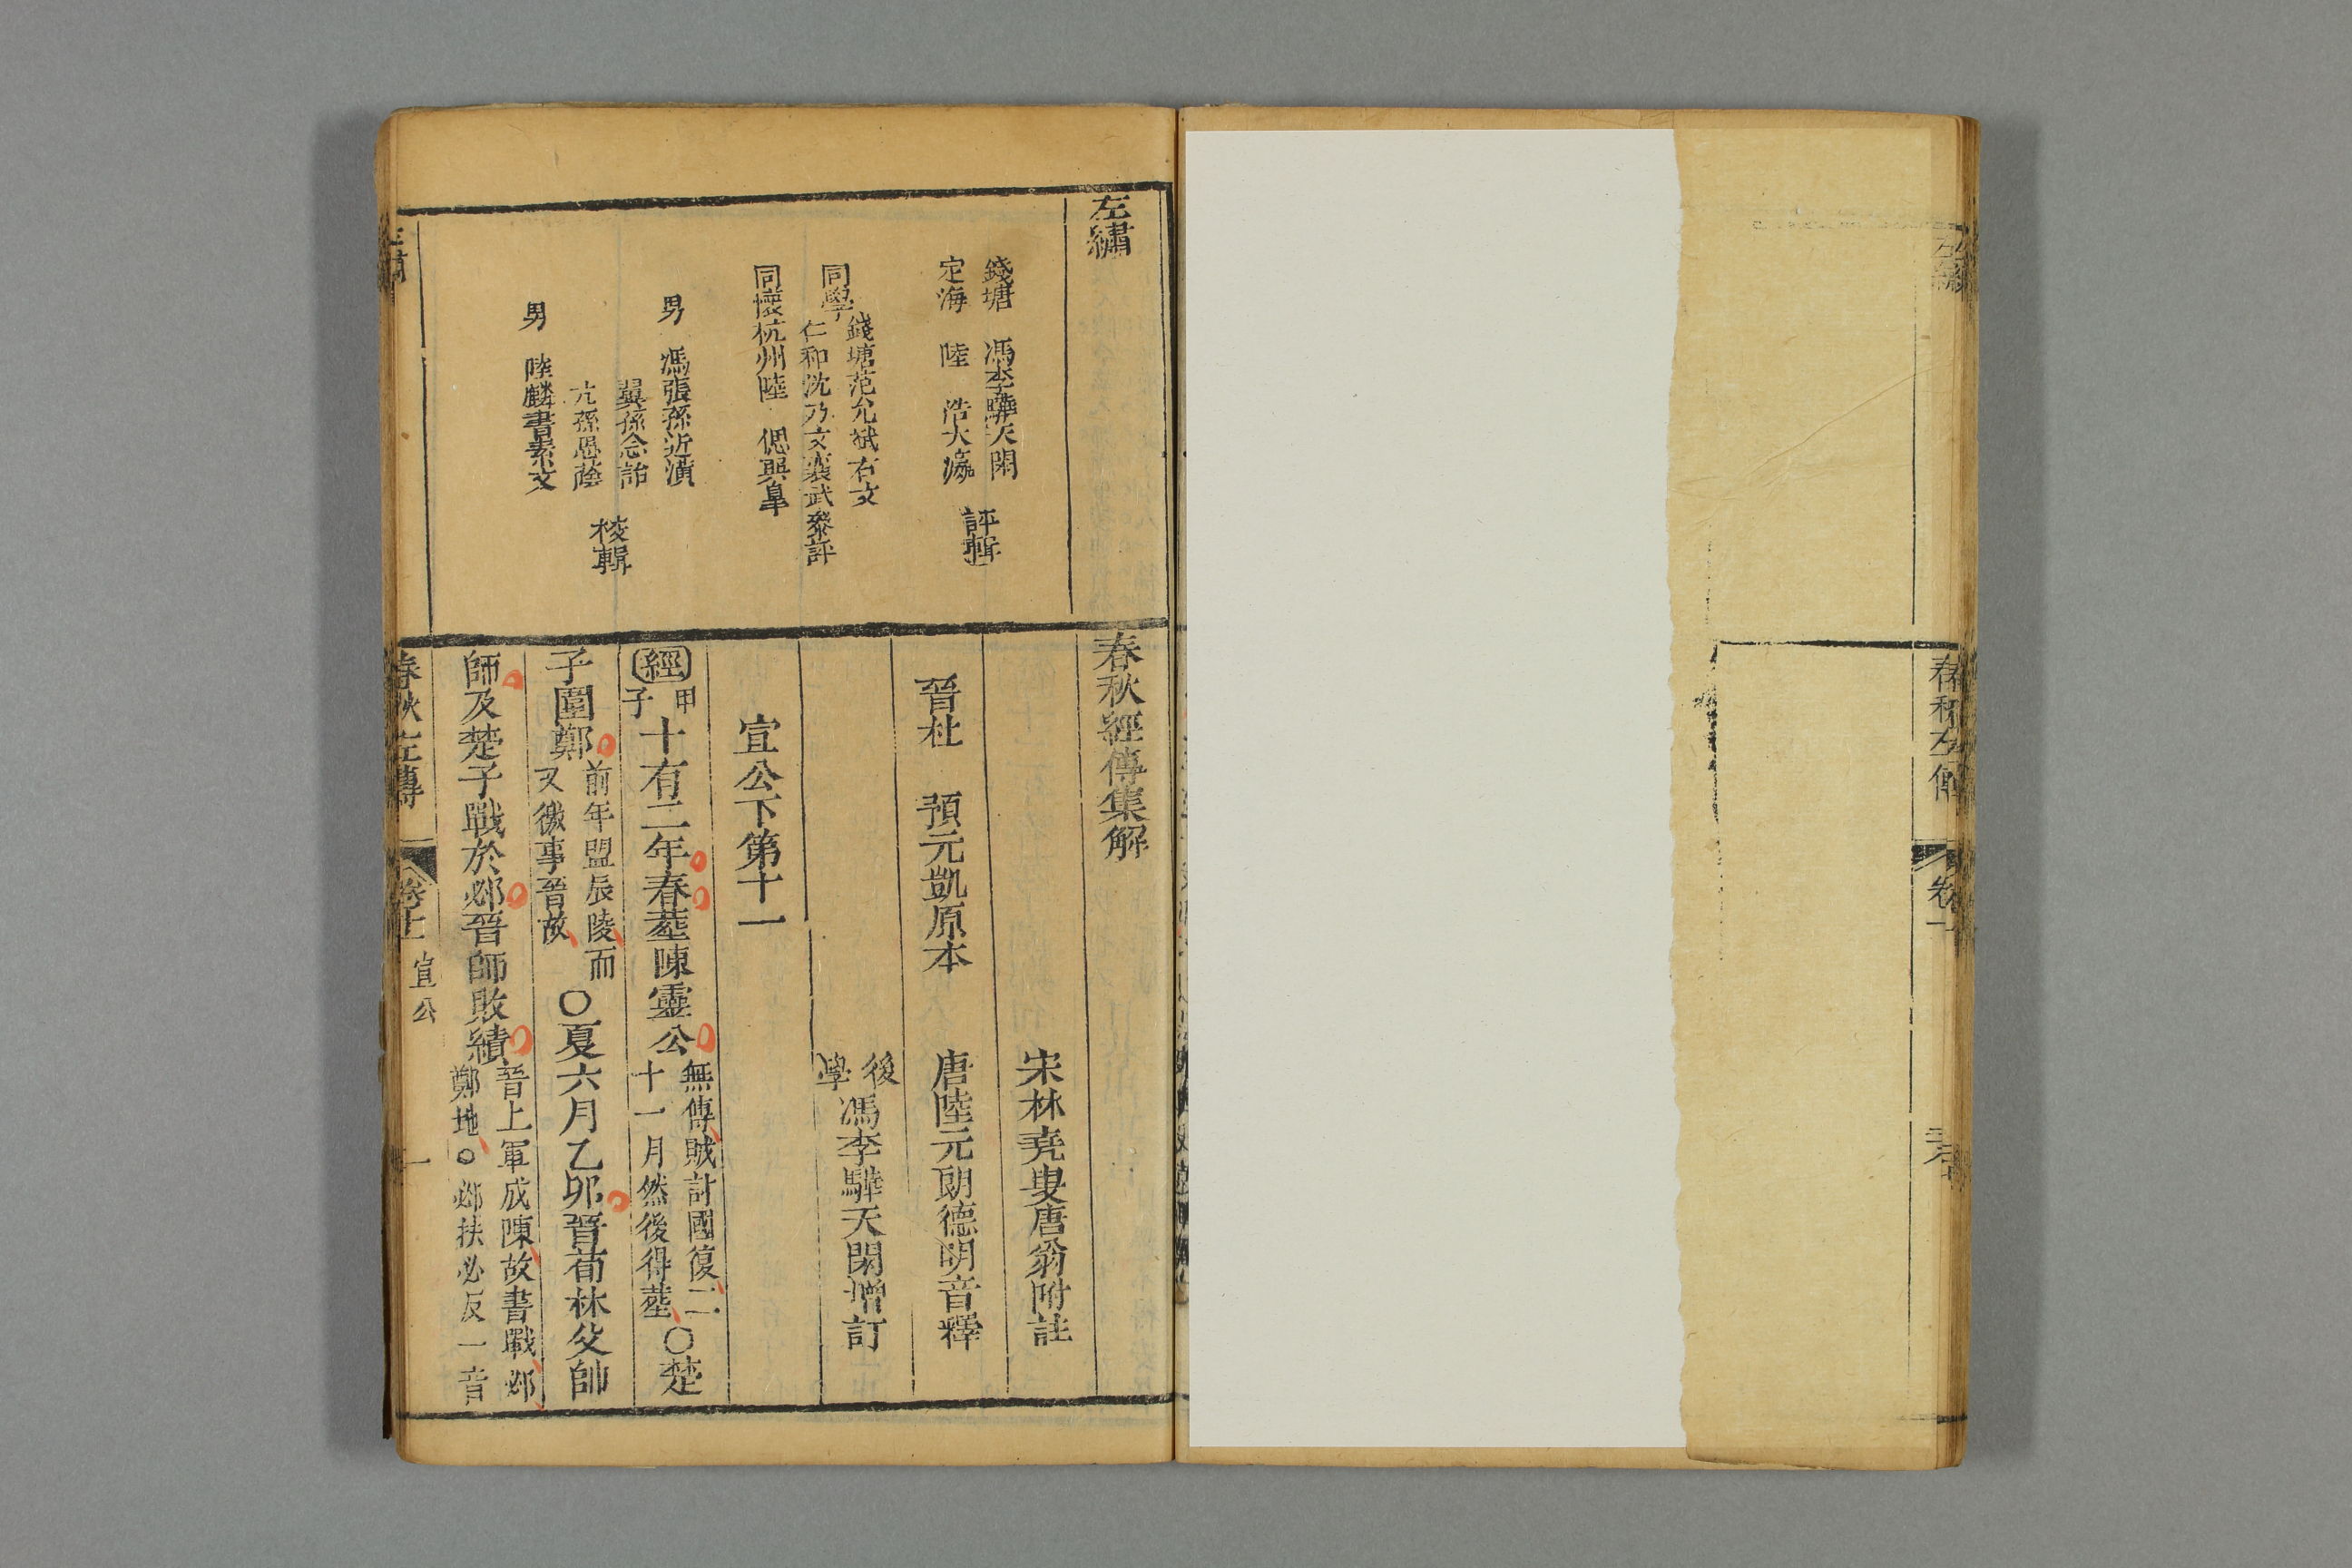 左繡
錢塘 馮李驊天閑
定海 陸 浩大瀛
評輯
同學
錢塘范允斌右文
仁和沈乃文襄武叅評
同懷杭州陸 偲與皐
男 馮張孫近潢
翼孫念詒
九孫思蔭
男 陸麟書素文
校輯
春秋經傳集解
宋林堯叟唐翁附註
晉杜 預元凱原本 唐陸元朗德明音釋
後學馮李驊天閑增訂
宣公下第十一
經 甲子 十有二年春塟陳靈公 無傳賊討國復二十一月然後得塟 〇楚
子圍鄭 前年盟辰陵而又徼事晉故 〇夏六月乙卯晉荀林父帥
師及楚子戰於邲晉師敗績 晉上軍成陳故書戰邲鄭地〇邲扶必反一音
春秋左傳 卷十一 宣公 一
左繡
春秋左傳